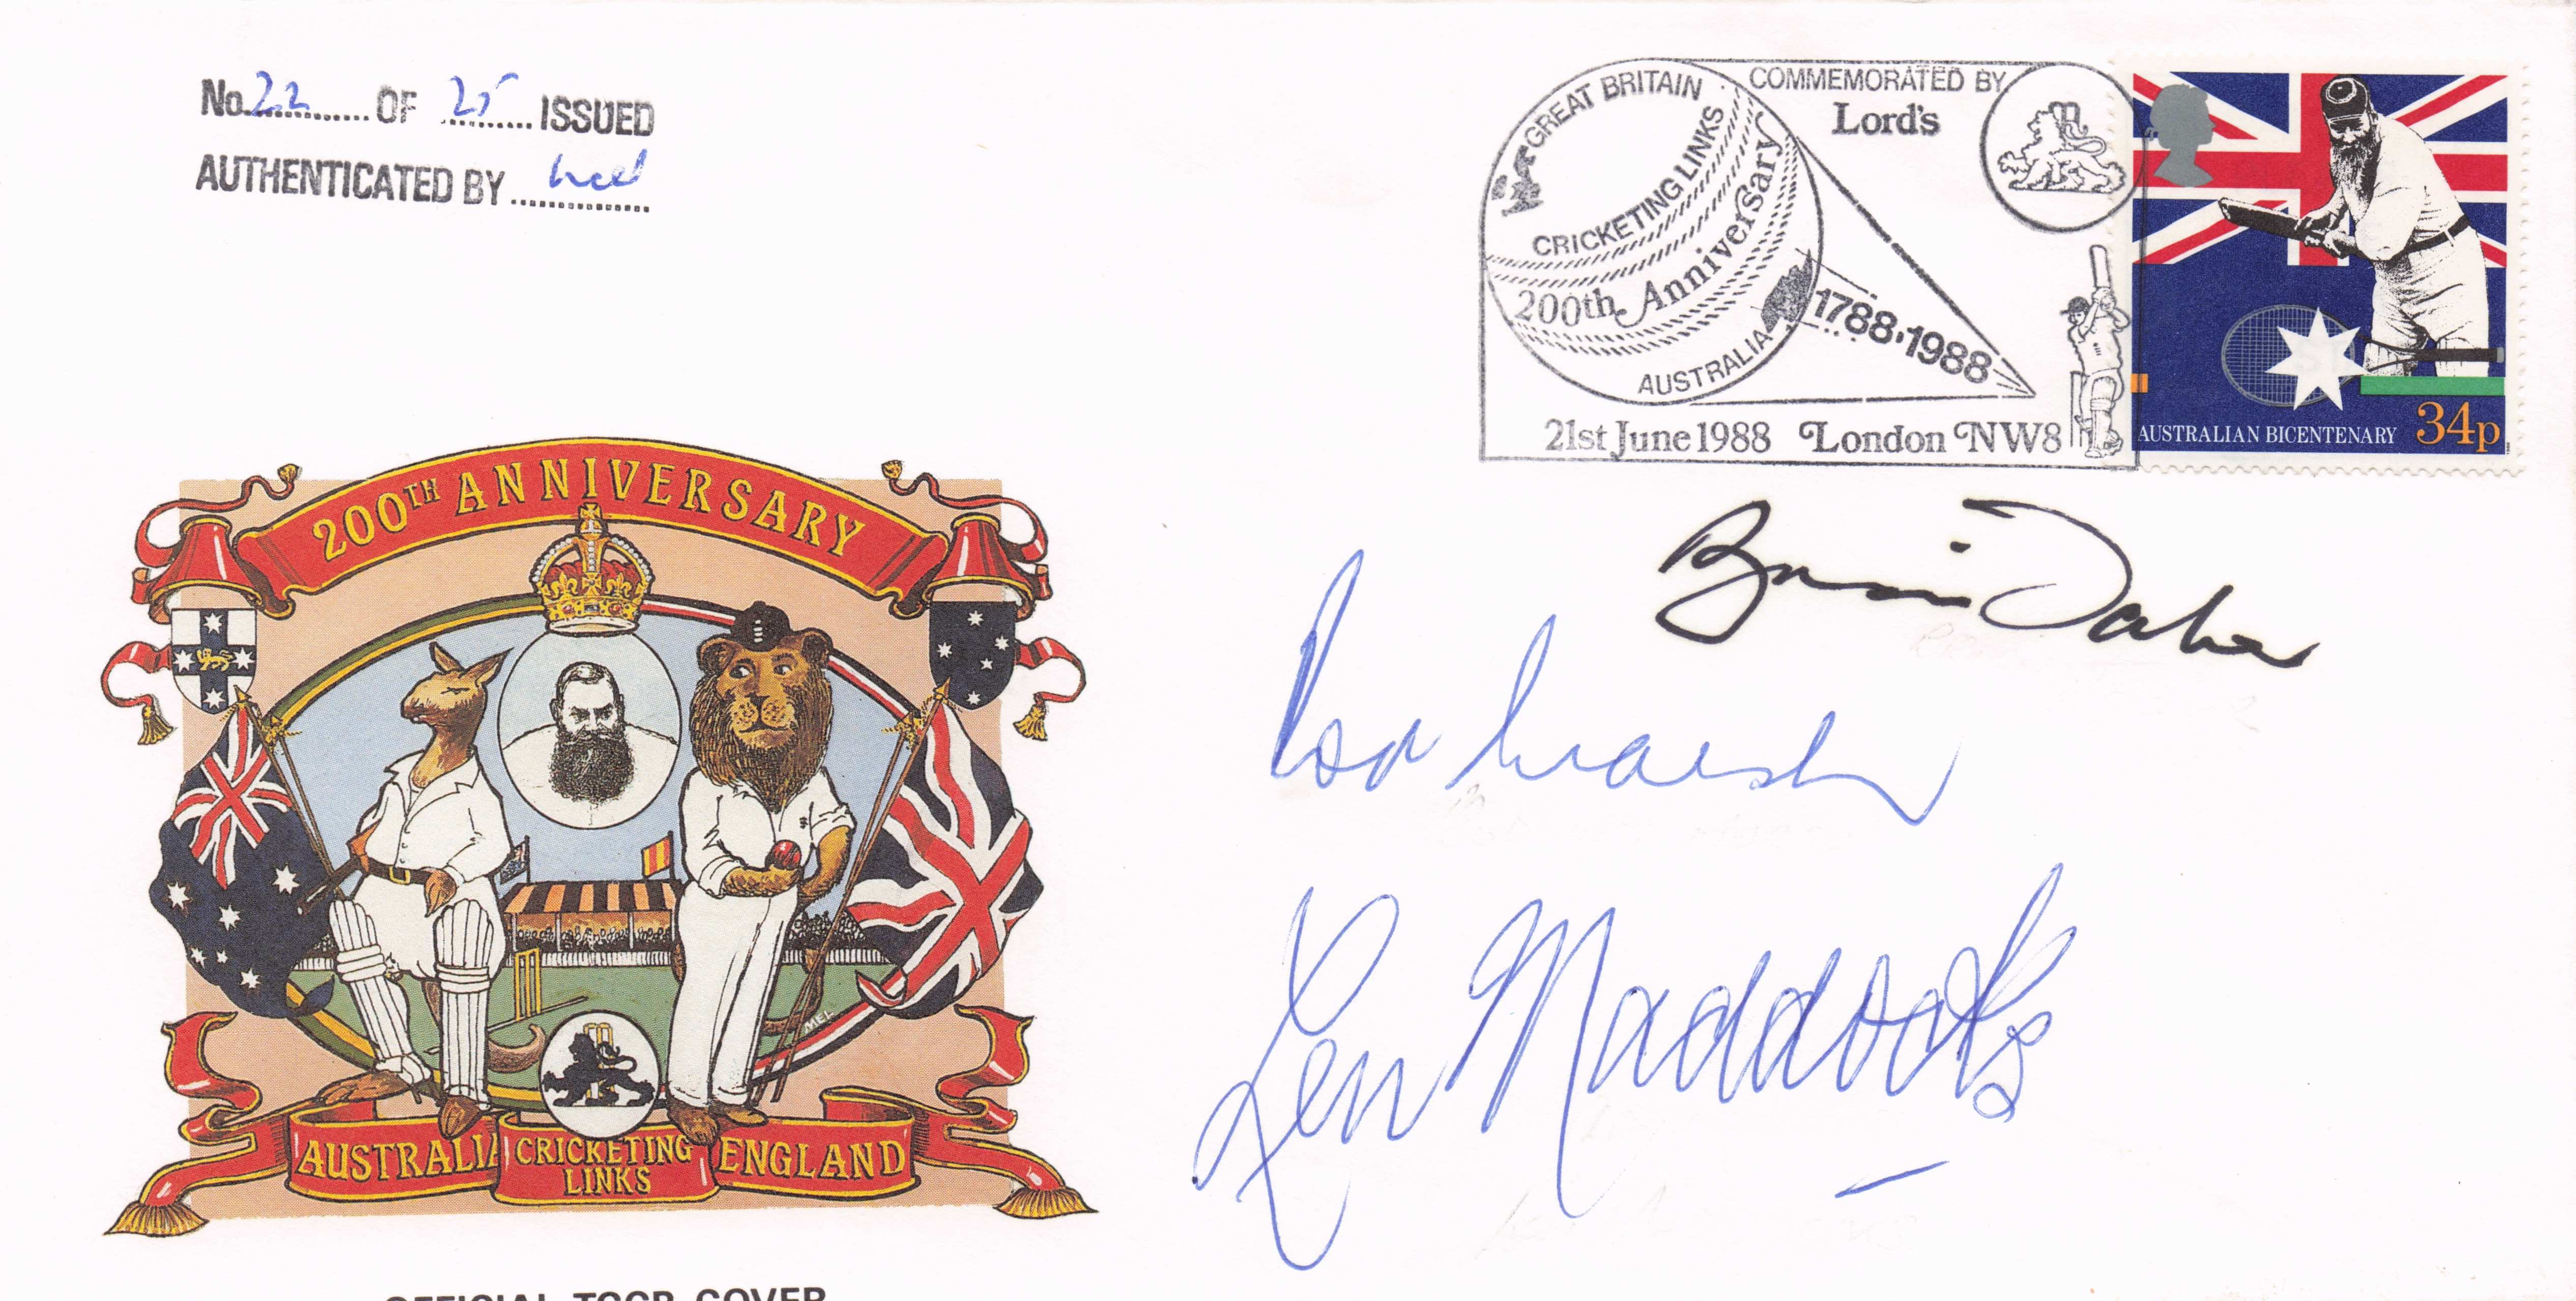 No 22 OF 25 ISSUED
AUTHENTICATED BY
GREAT BRITAIN
CRICKETING LINKS
200th Anniversary
AUSTRALIA
1788·1988
COMMEMORATED BY
Lord's
21st June 1988 London NW8
AUSTRALIAN BICENTENARY 34p
Brian Taber
Rod Marsh
Len Maddocks
200TH ANNIVERSARY
MEL
AUSTRALIA CRICKETING LINKS ENGLAND
OFFICIAL TCCB COVER